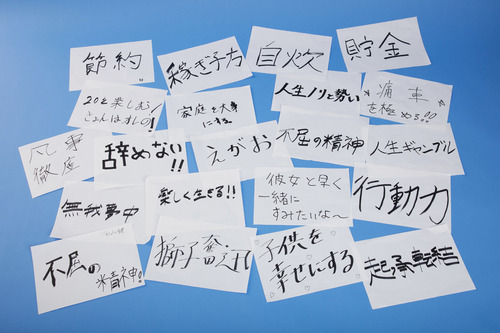 節約
稼ぎ方
自炊
貯金
20と楽しむ
人生ノリと勢い
を極める!!
家庭を大事
にする
徹底
辞めない
!!
えがお
不屈の精神
人生ギャンブル
無我夢中
楽しく生きる!!
彼女と早く
一緒に
すみたいな〜
行動力
不屈の
精神!
子供を
幸せにする
起承転結